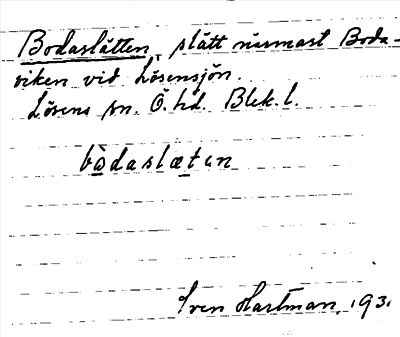 Bodaslätten, slätt närmast Boda-
viken vid Lösensjön.
Lösens sn. Ö. hd. Blek. l.
bòdaslætən
Sven Hartman, 1931